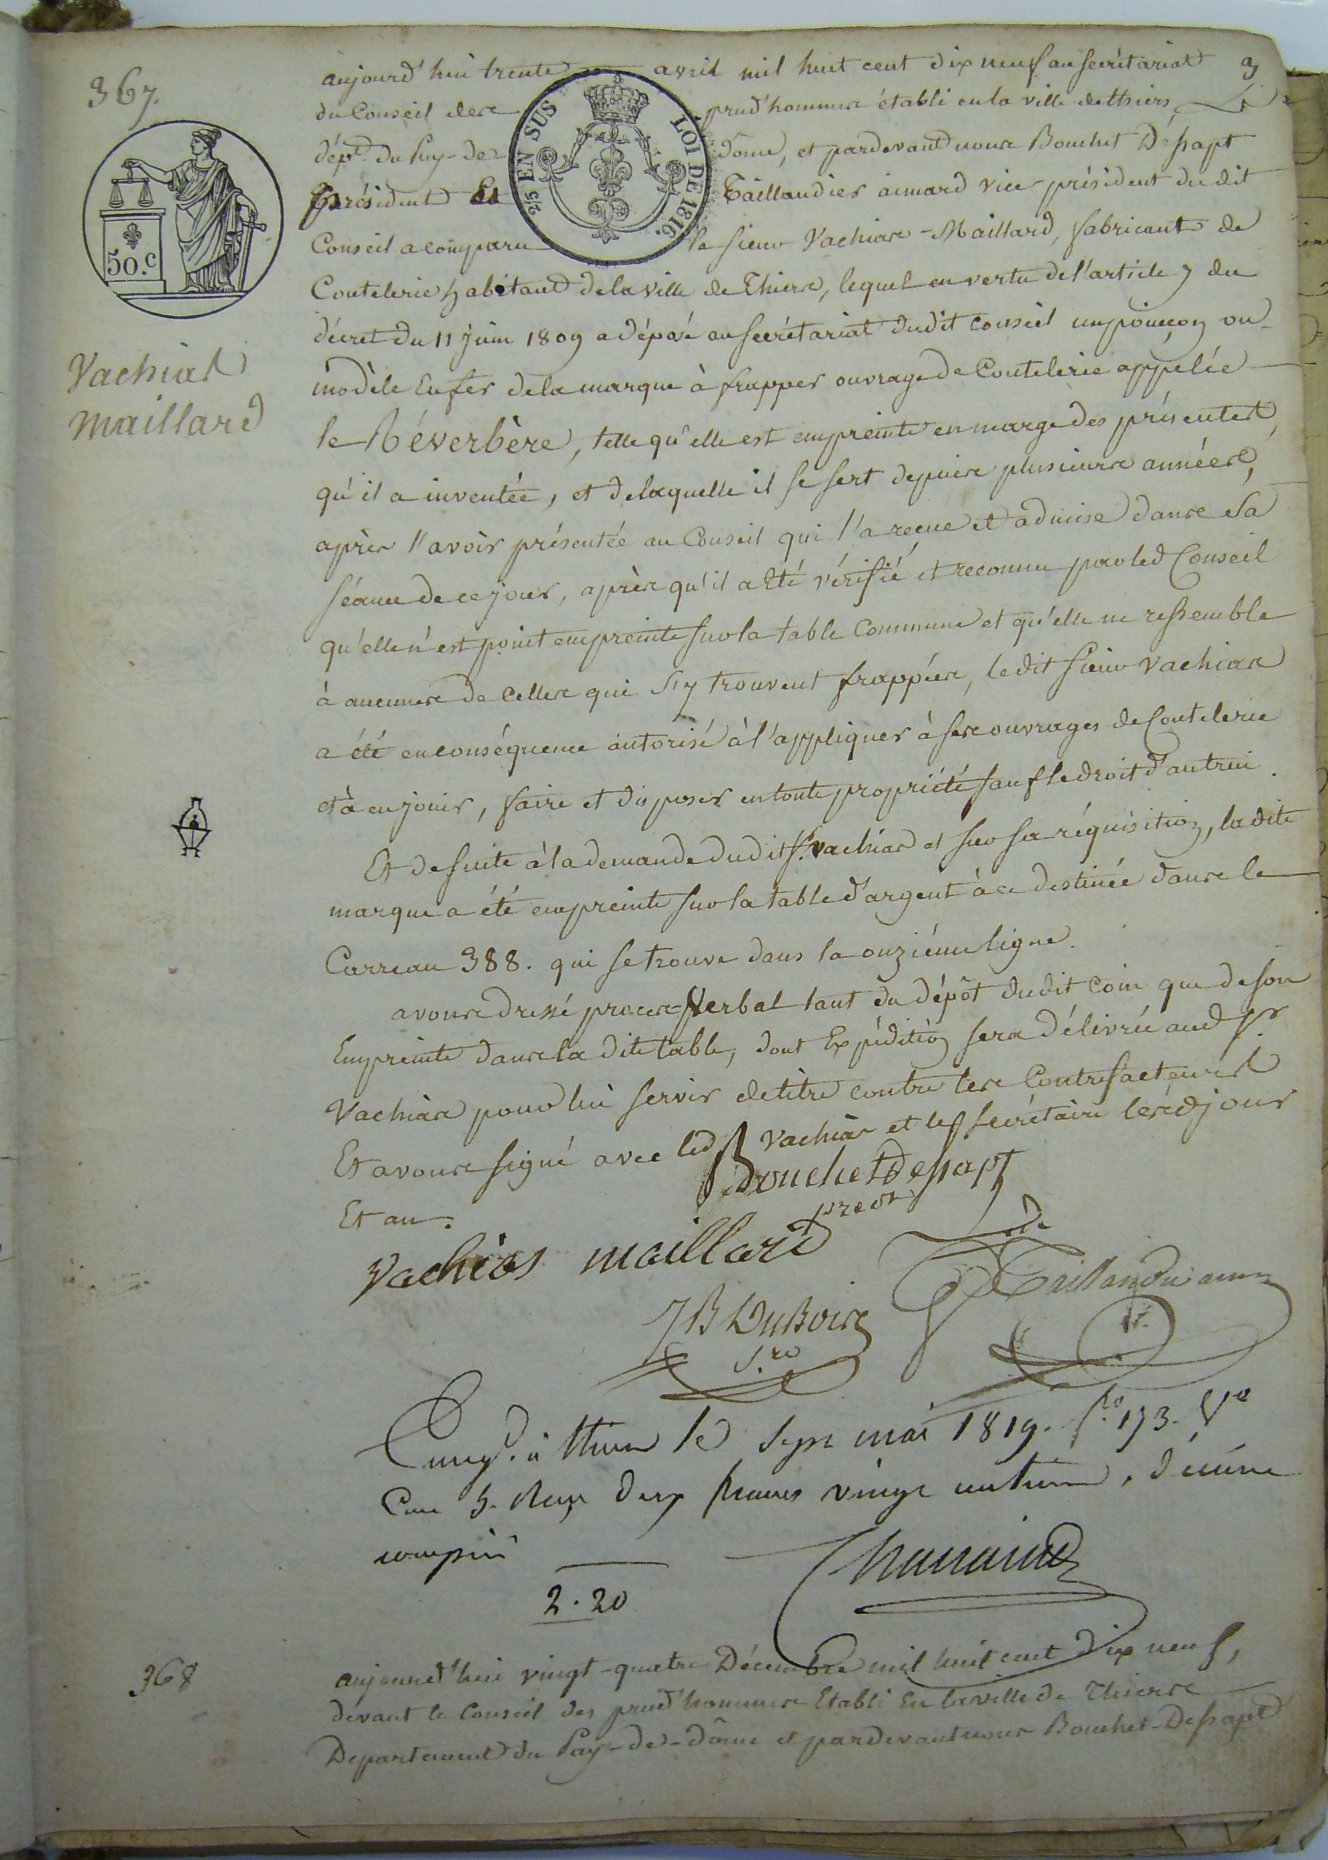 367.
50.c
25 EN SUS
LOI DE 1816.
3
Vachias
Maillard
aujourd'hui trente avril mil huit cent dix neuf au secrétariat
du Conseil des prud'hommes établi en la ville de thiers
dép.t du Puy-de dôme, et pardevant nous Bouchet Dessapt
président Et Taillandier aimard vice-président du dit
Conseil a comparu le sieur Vachias-Maillard, fabricant de
Coutelerie habitant de la ville de Thiers, lequel en vertu de l'article 7 du
décret du 11 juin 1809 a déposé au secrétariat dudit conseil un poinçon ou
modèle En fer de la marque à frapper ouvrage de Coutelerie appelée
le Réverbère, telle qu'elle est empreinte en marge des présentes
qu'il a inventée, et de laquelle il se sert depuis plusieurs années,
après l'avoir présentée au Conseil qui l'a reçue et admise dans sa
séance de ce jour, après qu'il a été vérifié et reconnu par led Conseil
qu'elle n'est point empreinte sur la table Commune et qu'elle ne ressemble
à aucunes de celles qui s'y trouvent frappées, le dit sieur Vachias
a été en conséquence autorisé à l'appliquer à ses ouvrages de Coutelerie
et à en jouir, faire et disposer en toute propriété sauf le droit d'autrui.
Et de suite à la demande dudit S. vachias et sur sa réquisition, la dite
marque a été empreinte sur la table d'argent à ce destinée dans le
Carreau 388. qui se trouve dans la onzième ligne.
avons dressé procès verbal tant du dépôt dudit coin que de son
Empreinte dans la dite table, dont Expédition sera délivrée aud Sr
Vachias pour lui servir de titre contre les Contrefacteurs
Et avons signé avec led S Vachias et le secrétaire lesd jour
Et an.
Bouchet Dessapt
présdt
Vachias maillard
Taillandier aimé
JB DuBois
S.re
Enreg.é à thiers le Sept mai 1819. f.o 173. V.o
Case 5. Reçu deux francs vingt centimes, décime
compris
2.20
368
aujourd'hui vingt-quatre Décembre mil huit cent dix neuf,
devant le Conseil des prud'hommes Etabli En la ville de Thiers
Departement du Puy-de-dôme et pardevant nous Bouchet-Dessapt